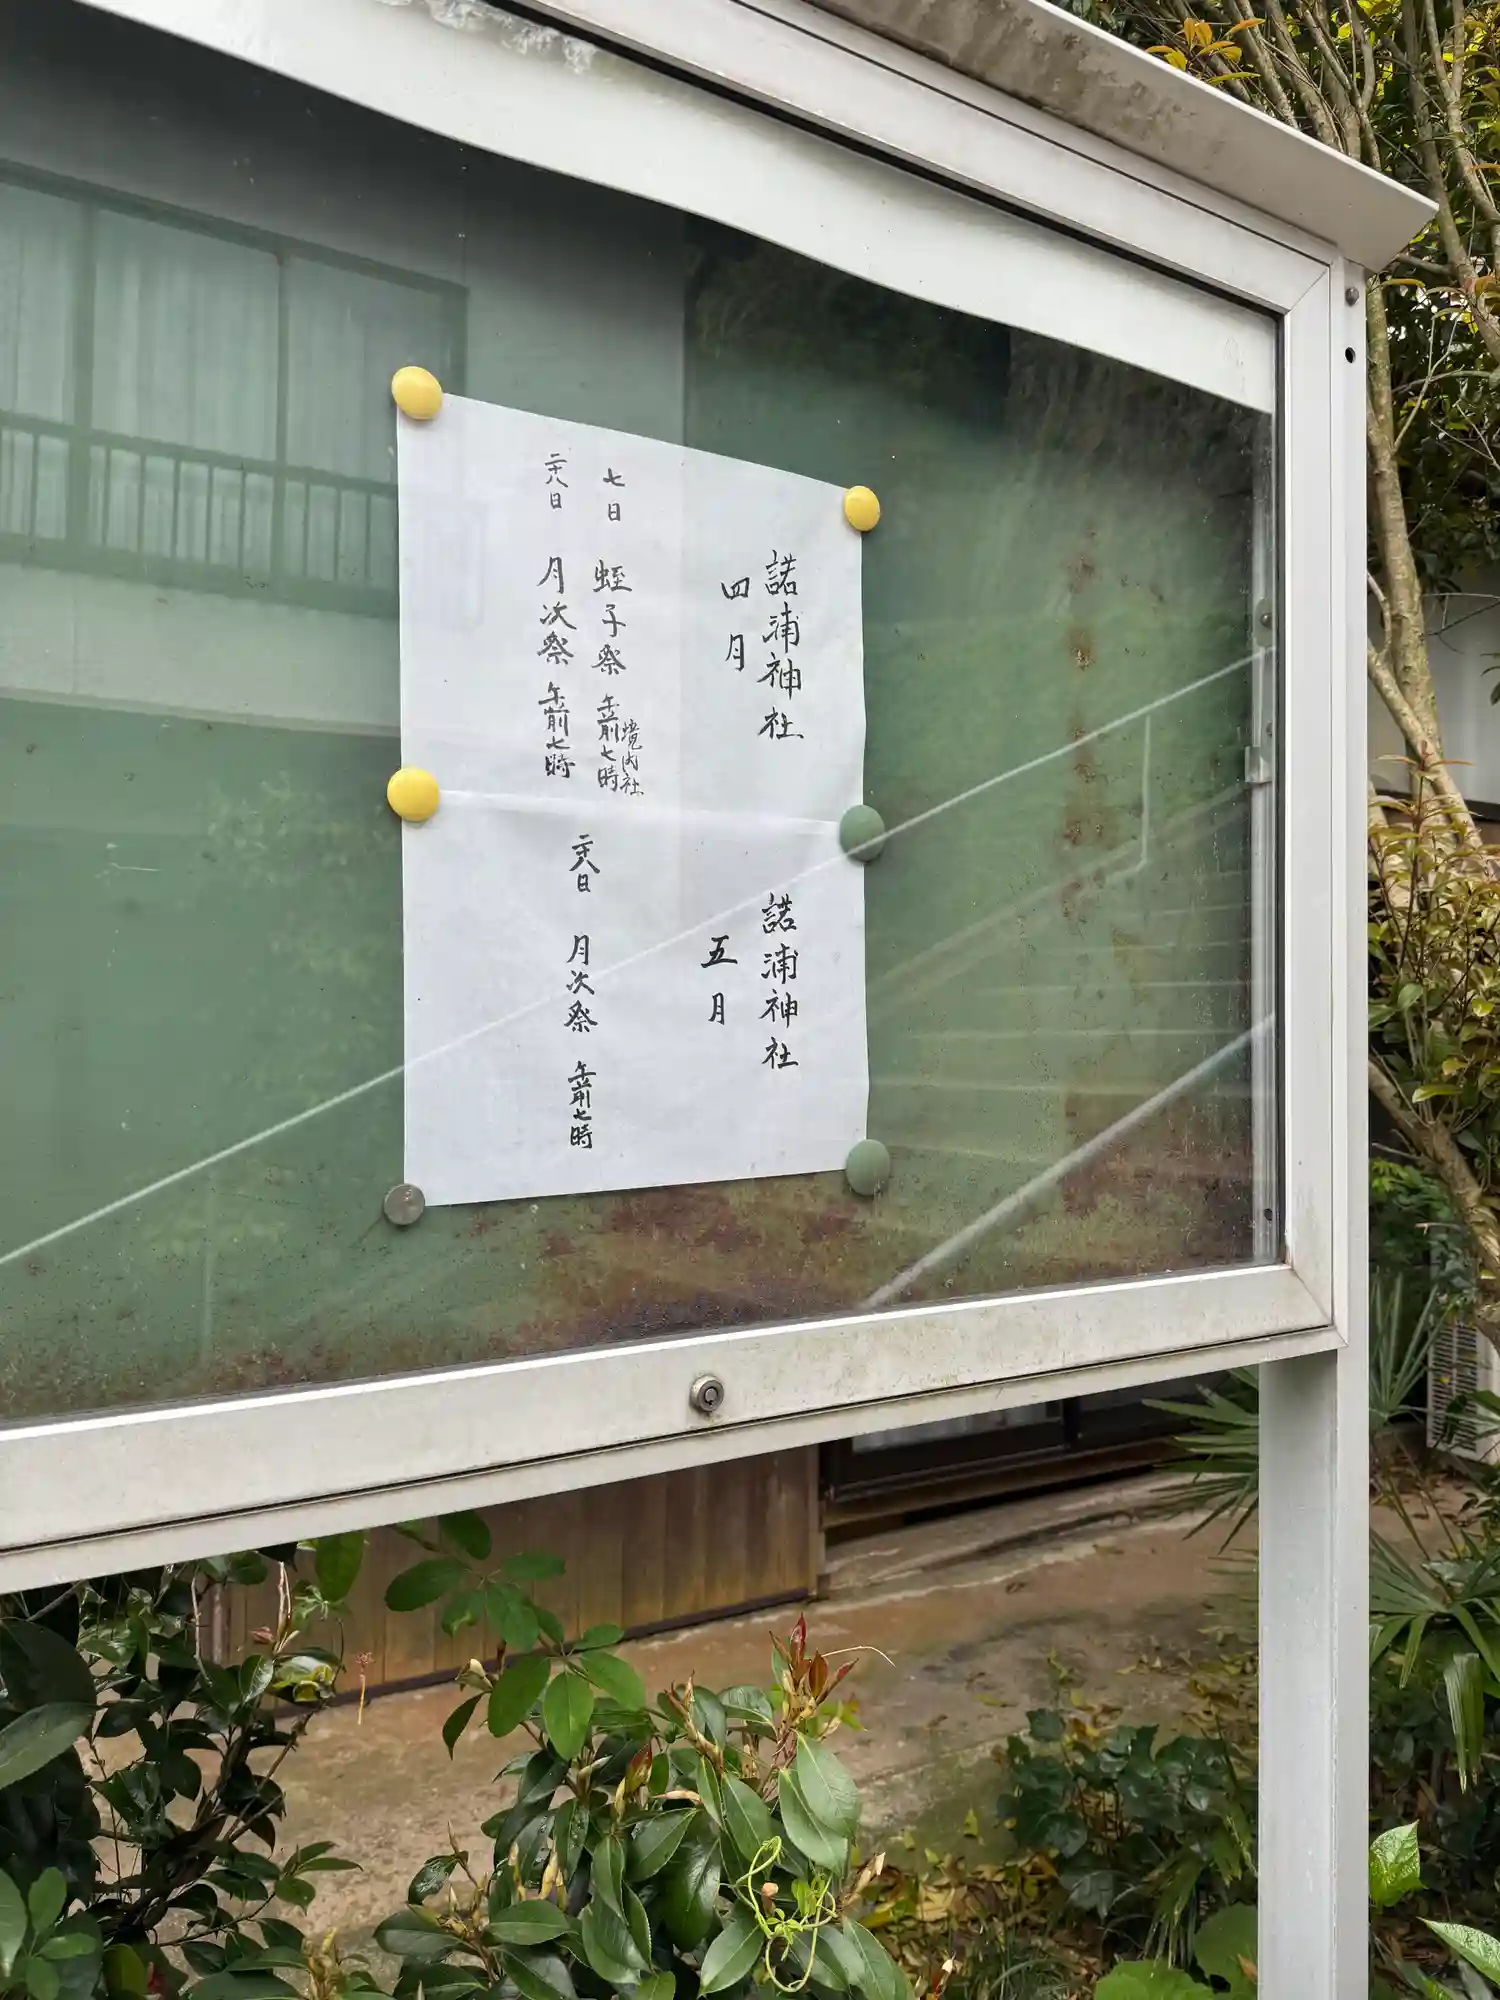 諾浦神社
四月
七日 蛭子祭 午前七時
境内社
二十八日 月次祭 午前七時
諾浦神社
五月
二十八日 月次祭 午前七時